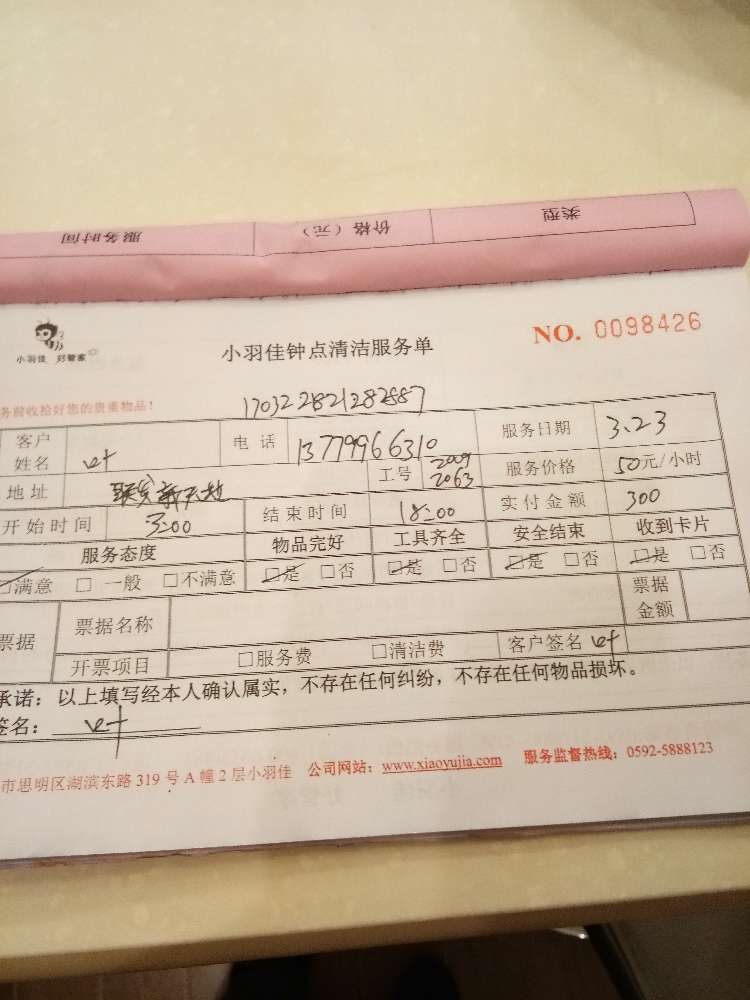 类型 价格（元） 服务时间
小羽佳 好管家
小羽佳钟点清洁服务单
NO. 0098426
务前收拾好您的贵重物品！
17032 2821282887
客户姓名 叶 电话 13779966310 服务日期 3.23
地址 联发新天地 工号 2009 2063 服务价格 50元/小时
开始时间 3:00 结束时间 18:00 实付金额 300
服务态度 物品完好 工具齐全 安全结束 收到卡片
满意 □ 一般 □不满意 □是 □否 □是 □否 □是 □否 □是 □否
票据 票据名称 票据金额
开票项目 □服务费 □清洁费 客户签名 叶
承诺：以上填写经本人确认属实，不存在任何纠纷，不存在任何物品损坏。
签名： 叶
市思明区湖滨东路 319 号 A 幢 2 层小羽佳 公司网站：www.xiaoyujia.com 服务监督热线：0592-5888123